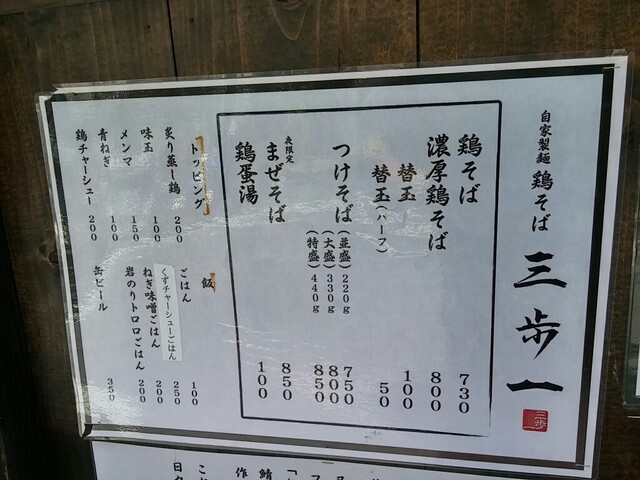 自家製麺 鶏そば
三歩一
三歩一
鶏そば 730
濃厚鶏そば 800
替玉 100
替玉(ハーフ) 50
つけそば (並盛)220g 750
(大盛)330g 800
(特盛)440g 850
夜限定
まぜそば 850
鶏蛋湯 100
トッピング
炙り蒸し鶏 200
味玉 100
メンマ 150
青ねぎ 100
鶏チャーシュー 200
飯
ごはん 100
くずチャーシューごはん 250
ねぎ味噌ごはん 200
岩のりトロロごはん 200
缶ビール 350